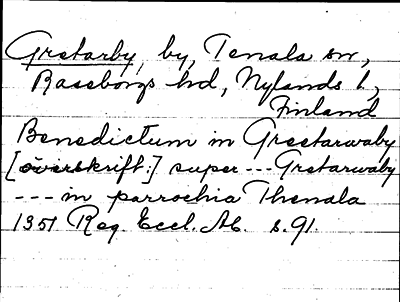 Grstarby, by, Tenala sn,
Raseborgs hd, Nylands l,
Finland
Benedictum in Grestarwaby
[överskrift:] super --- Grstarwaby
--- in parrochia Thenala
1351 Reg. Eccl. Ab. s. 91.